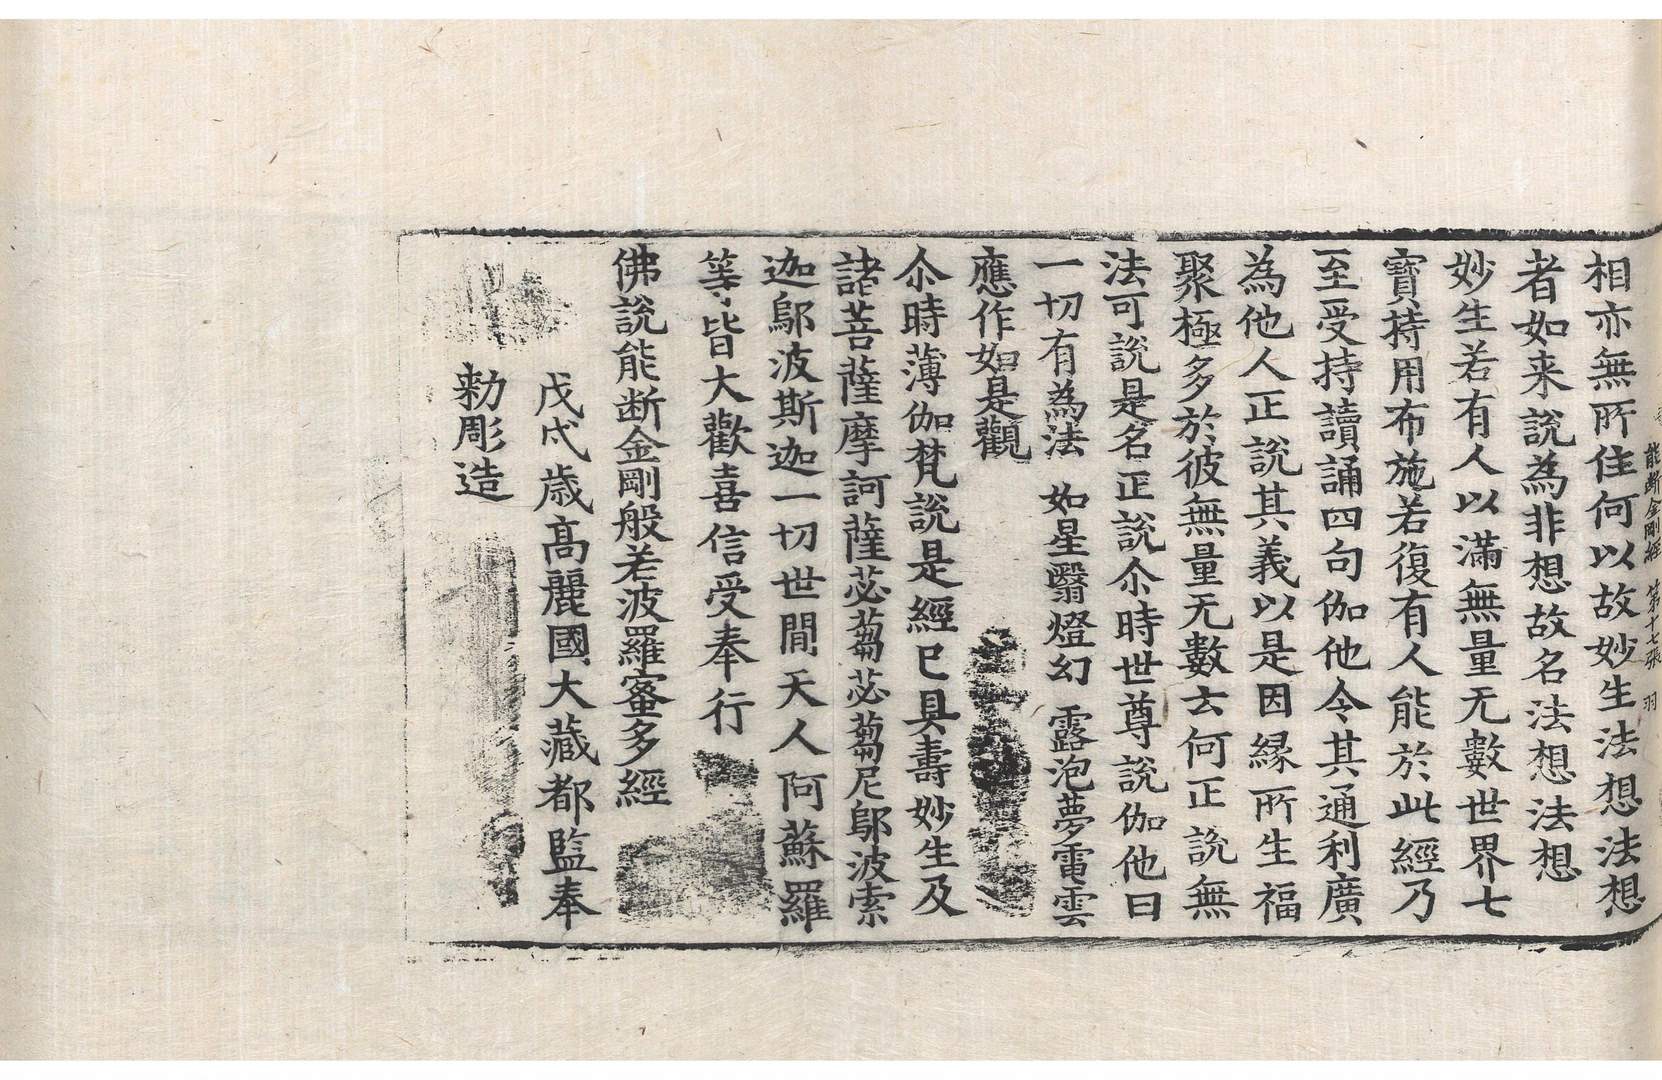 能断金剛經 第十七張 羽
相亦無所住何以故妙生法想法想
者如来說為非想故名法想法想
妙生若有人以滿無量无數世界七
寶持用布施若復有人能於此經乃
至受持讀誦四句伽他令其通利廣
為他人正說其義以是因緣所生福
聚極多於彼無量无數云何正說無
法可說是名正說尒時世尊說伽他曰
一切有為法 如星翳燈幻 露泡夢電雲
應作如是觀
尒時薄伽梵說是經已具壽妙生及
諸菩薩摩訶薩苾蒭苾蒭尼鄔波索
迦鄔波斯迦一切世間天人阿蘇羅
等皆大歡喜信受奉行
佛說能断金剛般若波羅蜜多經
戊戌歲髙麗國大藏都監奉
勑彫造